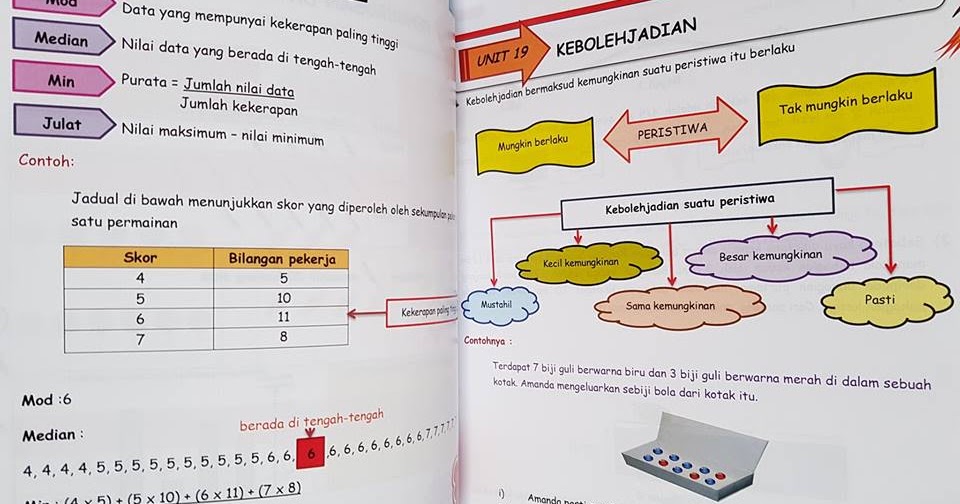 Mod
Data yang mempunyai kekerapan paling tinggi
Median
Nilai data yang berada di tengah-tengah
Min
Purata = Jumlah nilai data
Jumlah kekerapan
Julat
Nilai maksimum – nilai minimum
Contoh:
Jadual di bawah menunjukkan skor yang diperoleh oleh sekumpulan
satu permainan
Skor Bilangan pekerja
4 5
5 10
6 11
7 8
Kekerapan paling
Mod :6
Median :
berada di tengah-tengah
4, 4, 4, 4, 5, 5, 5, 5, 5, 5, 5, 5, 5, 5, 6, 6, 6 ,6, 6, 6, 6, 6, 6, 6, 6, 7, 7, 7, 7, 7
(4 x 5) + (5 x 10) + (6 x 11) + (7 x 8)
UNIT 19
KEBOLEHJADIAN
Kebolehjadian bermaksud kemungkinan suatu peristiwa itu berlaku
Mungkin berlaku
PERISTIWA
Tak mungkin berlaku
Kebolehjadian suatu peristiwa
Kecil kemungkinan
Besar kemungkinan
Mustahil
Sama kemungkinan
Pasti
Contohnya :
Terdapat 7 biji guli berwarna biru dan 3 biji guli berwarna merah di dalam sebuah
kotak. Amanda mengeluarkan sebiji bola dari kotak itu.
i) Amanda